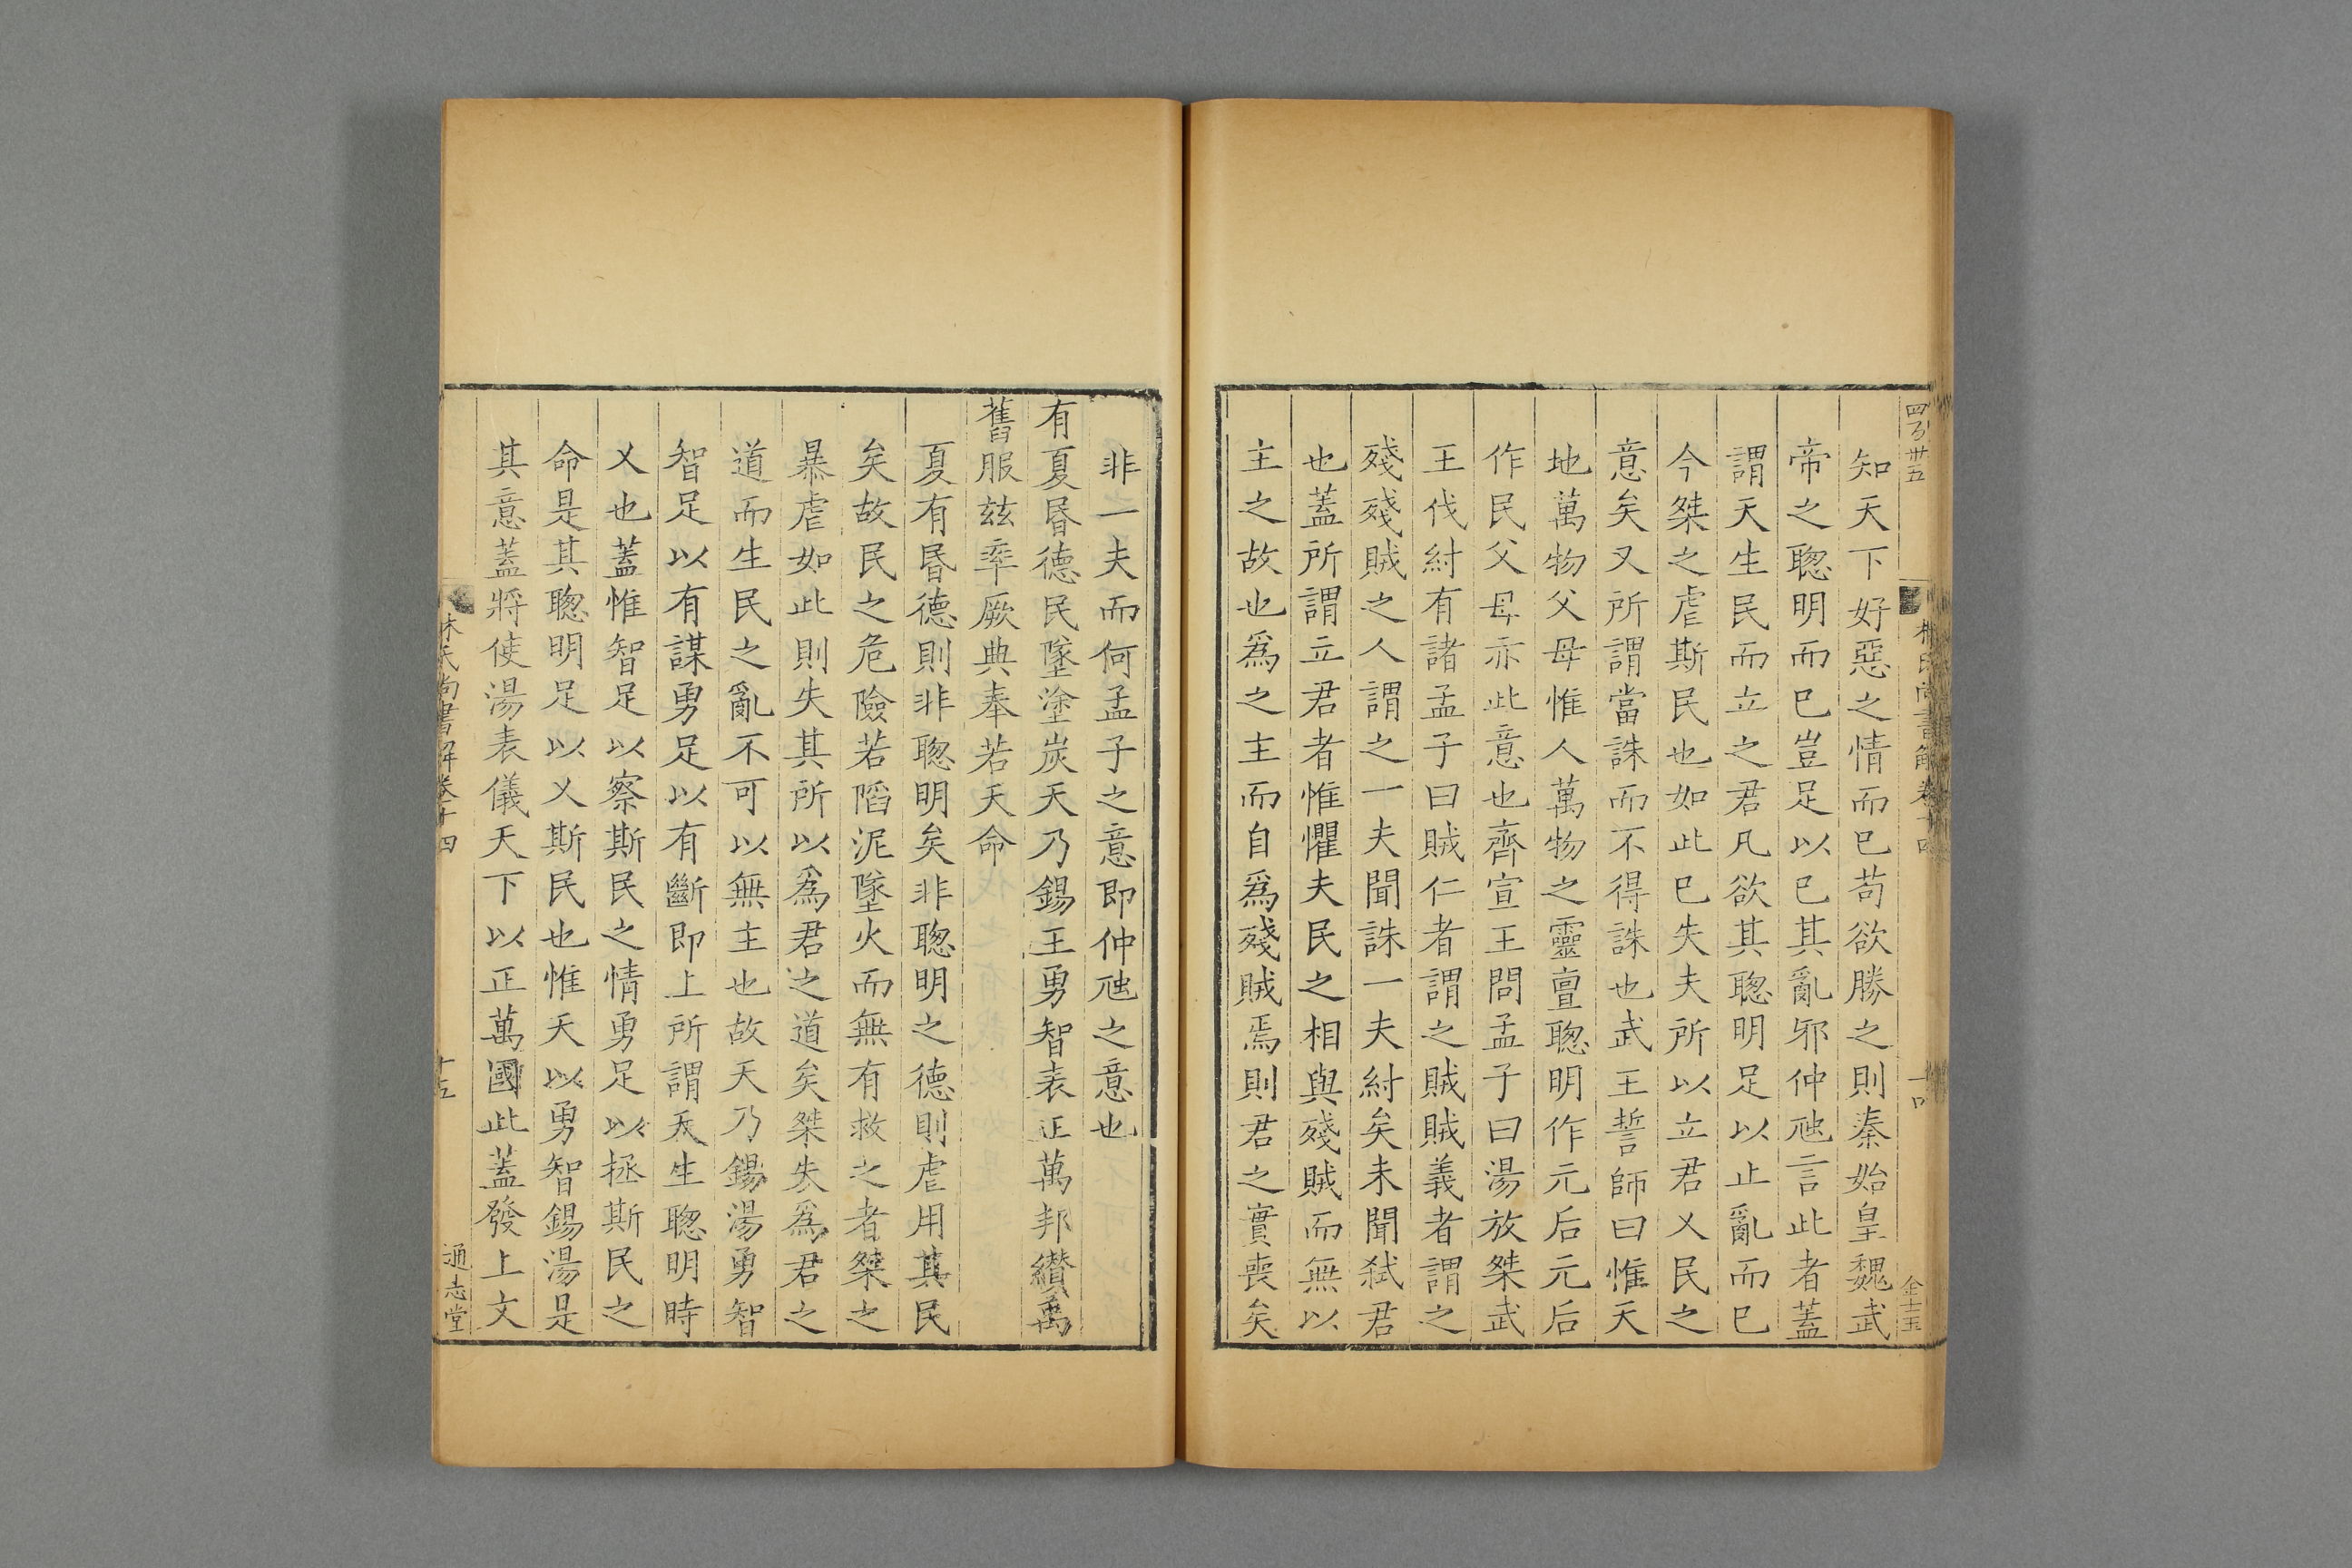 四百卅五
林氏尚書解卷十四
十四
金士玉
知天下好惡之情而已苟欲勝之則秦始皇魏武
帝之聦明而已豈足以已其亂邪仲虺言此者蓋
謂天生民而立之君凡欲其聦明足以止亂而已
今桀之虐斯民也如此已失夫所以立君乂民之
意矣又所謂當誅而不得誅也武王誓師曰惟天
地萬物父母惟人萬物之靈亶聦明作元后元后
作民父母亦此意也齊宣王問孟子曰湯放桀武
王伐紂有諸孟子曰賊仁者謂之賊賊義者謂之
殘殘賊之人謂之一夫聞誅一夫紂矣未聞弑君
也蓋所謂立君者惟懼夫民之相與殘賊而無以
主之故也爲之主而自爲殘賊焉則君之實喪矣
非一夫而何孟子之意即仲虺之意也
有夏昬德民墜塗炭天乃錫王勇智表正萬邦纘禹
舊服兹率厥典奉若天命
夏有昬德則非聦明矣非聦明之德則虐用其民
矣故民之危險若陷泥墜火而無有救之者桀之
暴虐如此則失其所以爲君之道矣桀失爲君之
道而生民之亂不可以無主也故天乃錫湯勇智
智足以有謀勇足以有斷即上所謂天生聦明時
乂也蓋惟智足以察斯民之情勇足以拯斯民之
命是其聦明足以乂斯民也惟天以勇智錫湯是
其意蓋將使湯表儀天下以正萬國此蓋發上文
林氏尚書解卷十四
十五
通志堂